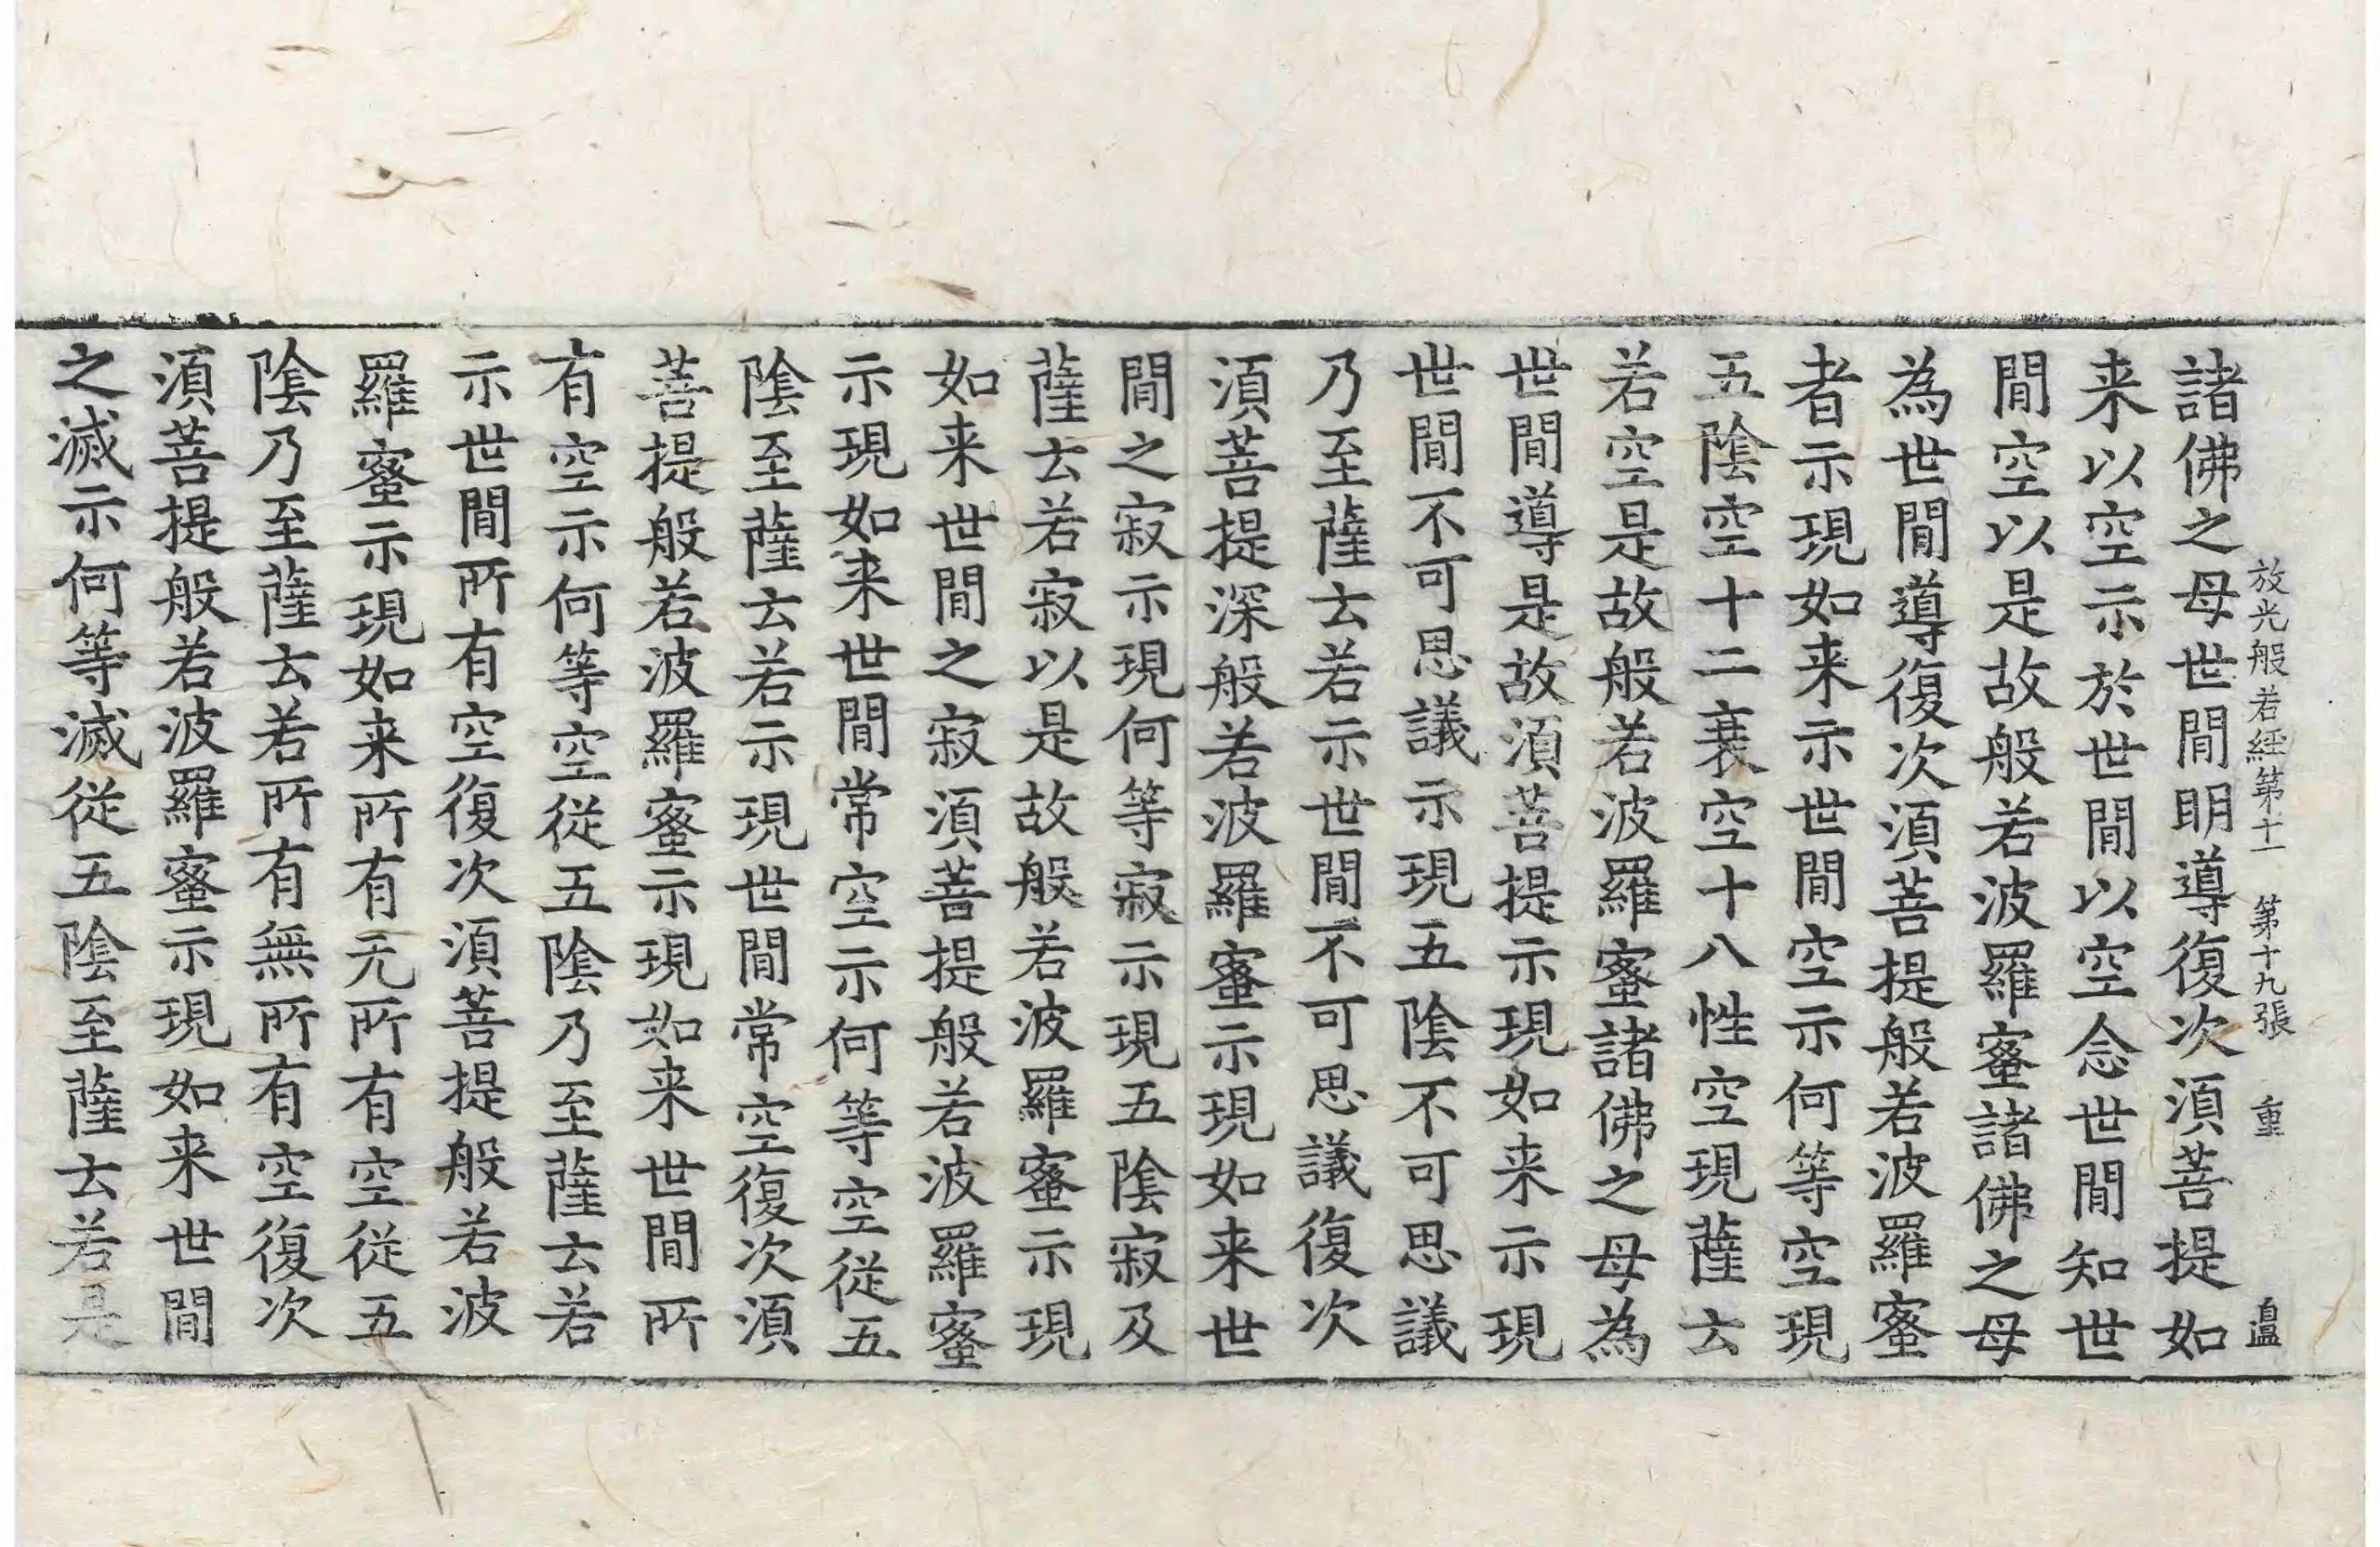 放光般若經第十一 第十九張 重 昷
諸佛之母世間明導復次須菩提如
来以空示於世間以空念世間知世
間空以是故般若波羅蜜諸佛之母
為世間導復次須菩提般若波羅蜜
者示現如来示世間空示何等空現
五陰空十二衰空十八性空現薩云
若空是故般若波羅蜜諸佛之母為
世間導是故須菩提示現如来示現
世間不可思議示現五陰不可思議
乃至薩云若示世間不可思議復次
須菩提深般若波羅蜜示現如来世
間之寂示現何等寂示現五陰寂及
薩云若寂以是故般若波羅蜜示現
如来世間之寂須菩提般若波羅蜜
示現如来世間常空示何等空從五
陰至薩云若示現世間常空復次須
菩提般若波羅蜜示現如来世間所
有空示何等空從五陰乃至薩云若
示世間所有空復次須菩提般若波
羅蜜示現如来所有无所有空從五
陰乃至薩云若所有無所有空復次
須菩提般若波羅蜜示現如来世間
之滅示何等滅從五陰至薩云若是